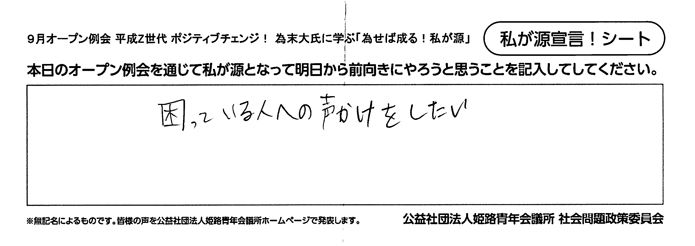 9月オープン例会 平成Z世代 ポジティブチェンジ! 為末大氏に学ぶ「為せば成る!私が源」
私が源宣言!シート
本日のオープン例会を通じて私が源となって明日から前向きにやろうと思うことを記入してしてください。
困っている人への声かけをしたい
※無記名によるものです。皆様の声を公益社団法人姫路青年会議所ホームページで発表します。
公益社団法人姫路青年会議所 社会問題政策委員会